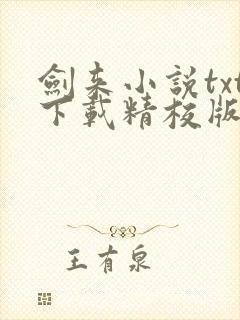 劍来小説txt
下載精校版
王有泉